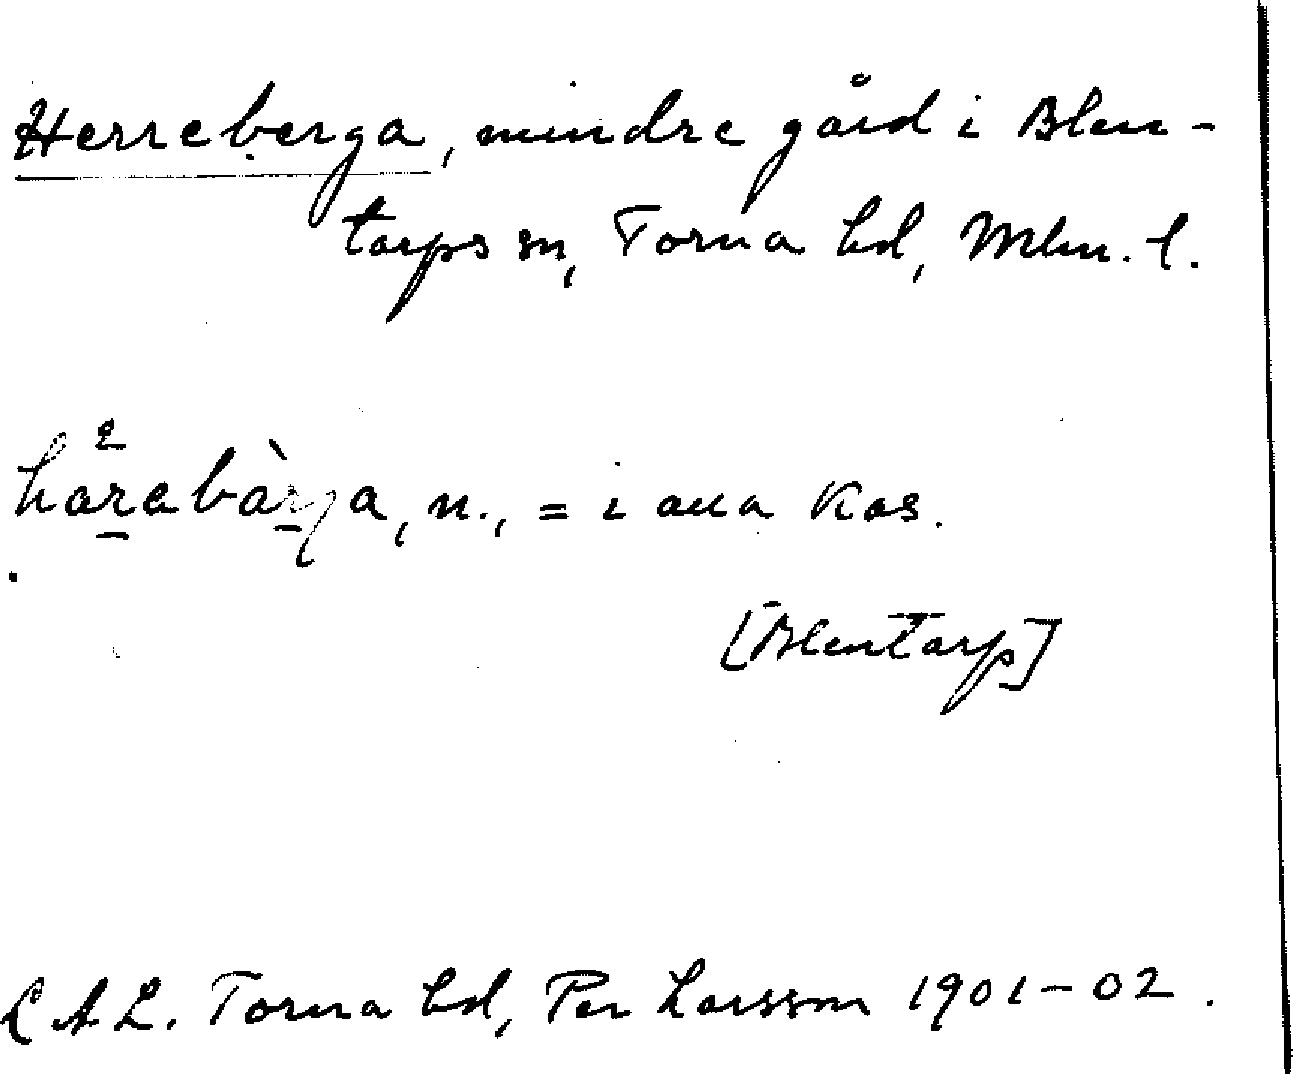 Herreberga, mindre gård i Blen-
tarps sn, Torna hd, Mlm. l.
hårabàrga, n., = i alla Kas.
[Blentarp]
L A L. Torna hd, Per Larsson 1901-02.